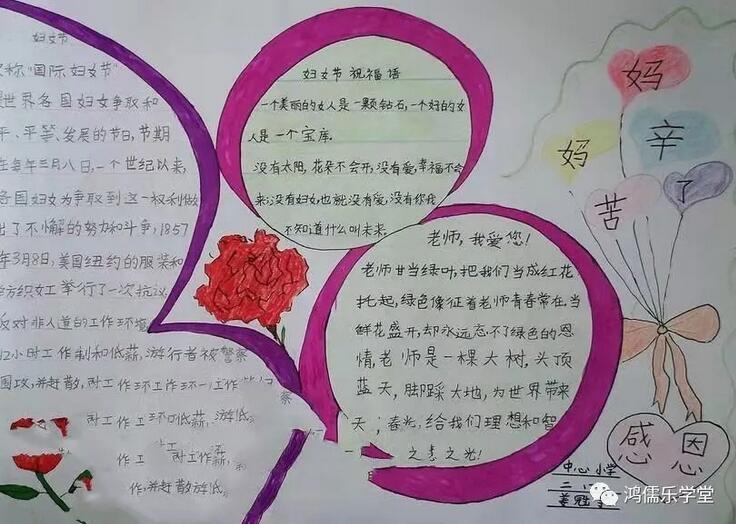 妇女节
称"国际妇女节"
世界各国妇女争取和
平、平等、发展的节日,节期
在每年三月八日,一个世纪以来,
各国妇女为争取到这一权利做
出了不懈的努力和斗争,1857
年3月8日,美国纽约的服装和
纺织女工举行了一次抗议
反对非人道的工作环境
12小时工作制和低薪,游行者被警察
围攻,并赶散,对工作环工作环一工作
察
对工作工环低薪,游低
作工 对工作薪
作,并赶散游低
妇女节祝福语
一个美丽的女人是一颗钻石,一个好的女
人是一个宝库.
没有太阳,花朵不会开,没有爱,幸福不会
来,没有妇女,也就没有爱,没有你我
不知道什么叫未来.
老师,我爱您!
老师甘当绿叶,把我们当成红花
托起,绿色像征着老师青春常在.当
鲜花盛开,却永远忘不了绿色的恩
情,老师是一棵大树,头顶
蓝天,脚踩大地,为世界带来
天;春光,给我们理想和智
之光!
妈
妈
辛
苦
了
感恩
中心小学
二
姜胜
鸿儒乐学堂